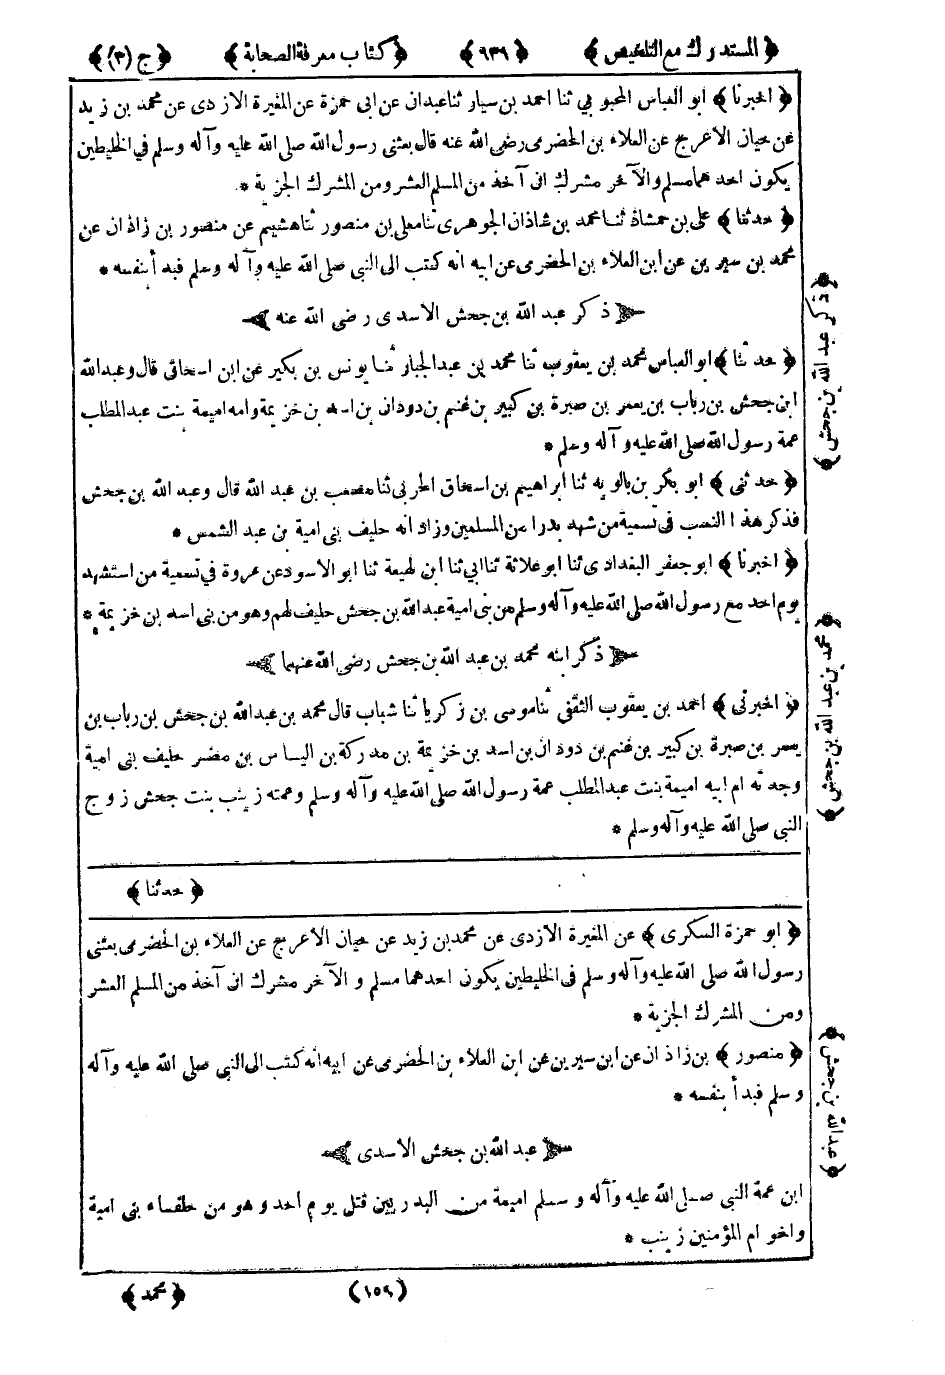 ﴿المستدرك مع التلخيص﴾ ﴿٦٣٩﴾ ﴿كتاب معرفة الصحابة﴾ ﴿ج (٣)﴾
﴿اخبرنا﴾ ابو العباس المحبوبي ثنا احمد بن سيار ثنا عبدان عن ابى حمزة عن المغيرة الازدى عن محمد بن زيد
عن حيان الاعرج عن العلاء بن الحضرمى رضى الله عنه قال بعثنى رسول الله صلى الله عليه وآله وسلم في الخليطين
يكون احدهما مسلم والآخر مشرك انى آخذ من المسلم العشر ومن المشرك الجزية *
﴿حدثنا﴾ على بن حمشاذ ثنا محمد بن شاذان الجوهرى ثنا معلى بن منصور ثنا هشيم عن منصور بن زاذان عن
محمد بن سيرين عن ابن العلاء بن الحضرمى عن ابيه انه كتب الى النبي صلى الله عليه وآله وسلم فبدأ بنفسه *
ذكر عبد الله بن جحش الاسدى رضى الله عنه
﴿حدثنا﴾ ابو العباس محمد بن يعقوب ثنا محمد بن عبد الجبار ثنا يونس بن بكير عن ابن اسحاق قال وعبد الله
ابن جحش بن رباب بن يعمر بن صبرة بن كبير بن غنم بن دودان بن اسد بن خزيمة وامه اميمة بنت عبد المطلب
عمة رسول الله صلى الله عليه وآله وسلم *
﴿حدثنى﴾ ابو بكر بن بالويه ثنا ابراهيم بن اسحاق الحربى ثنا مصعب بن عبد الله قال وعبد الله بن جحش
فذكر هذا النسب فى تسمية من شهد بدرا من المسلمين وزاد انه حليف بنى امية بن عبد الشمس *
﴿اخبرنا﴾ ابو جعفر البغدادى ثنا ابو علاثة ثنا ابي ثنا ابن لهيعة ثنا ابو الاسود عن عروة في تسمية من استشهد
يوم احد مع رسول الله صلى الله عليه وآله وسلم من بنى امية عبد الله بن جحش حليف لهم وهو من بنى اسد بن خزيمة *
ذكر ابنه محمد بن عبد الله بن جحش رضى الله عنهما
﴿اخبرنى﴾ احمد بن يعقوب الثقفى ثنا موسى بن زكريا ثنا شباب قال محمد بن عبد الله بن جحش بن رباب بن
يعمر بن صبرة بن كبير بن غنم بن دودان بن اسد بن خزيمة بن مدركة بن الياس بن مضر حليف بنى امية
وجدته ام ابيه اميمة بنت عبد المطلب عمة رسول الله صلى الله عليه وآله وسلم وعمته زينب بنت جحش زوج
النبى صلى الله عليه وآله وسلم *
﴿حدثنا﴾
﴿ابو حمزة السكرى﴾ عن المغيرة الازدى عن محمد بن زيد عن حيان الاعرج عن العلاء بن الحضرمى بعثنى
رسول الله صلى الله عليه وآله وسلم فى الخليطين يكون احدهما مسلم و الآخر مشرك انى آخذ من المسلم العشر
ومن المشرك الجزية *
﴿منصور﴾ بن زاذان عن ابن سيرين عن ابن العلاء بن الحضرمى عن ابيه انه كتب الى النبى صلى الله عليه وآله
وسلم فبدأ بنفسه *
عبد الله بن جحش الاسدى
ابن عمة النبي صلى الله عليه وآله وسلم اميمة من البدريين قتل يوم احد وهو من حلفاء بنى امية
واخو ام المؤمنين زينب *
(١٥٩) ﴿محمد﴾
﴿ذكر عبد الله بن جحش﴾
﴿محمد بن عبد الله بن جحش﴾
﴿عبد الله بن جحش﴾